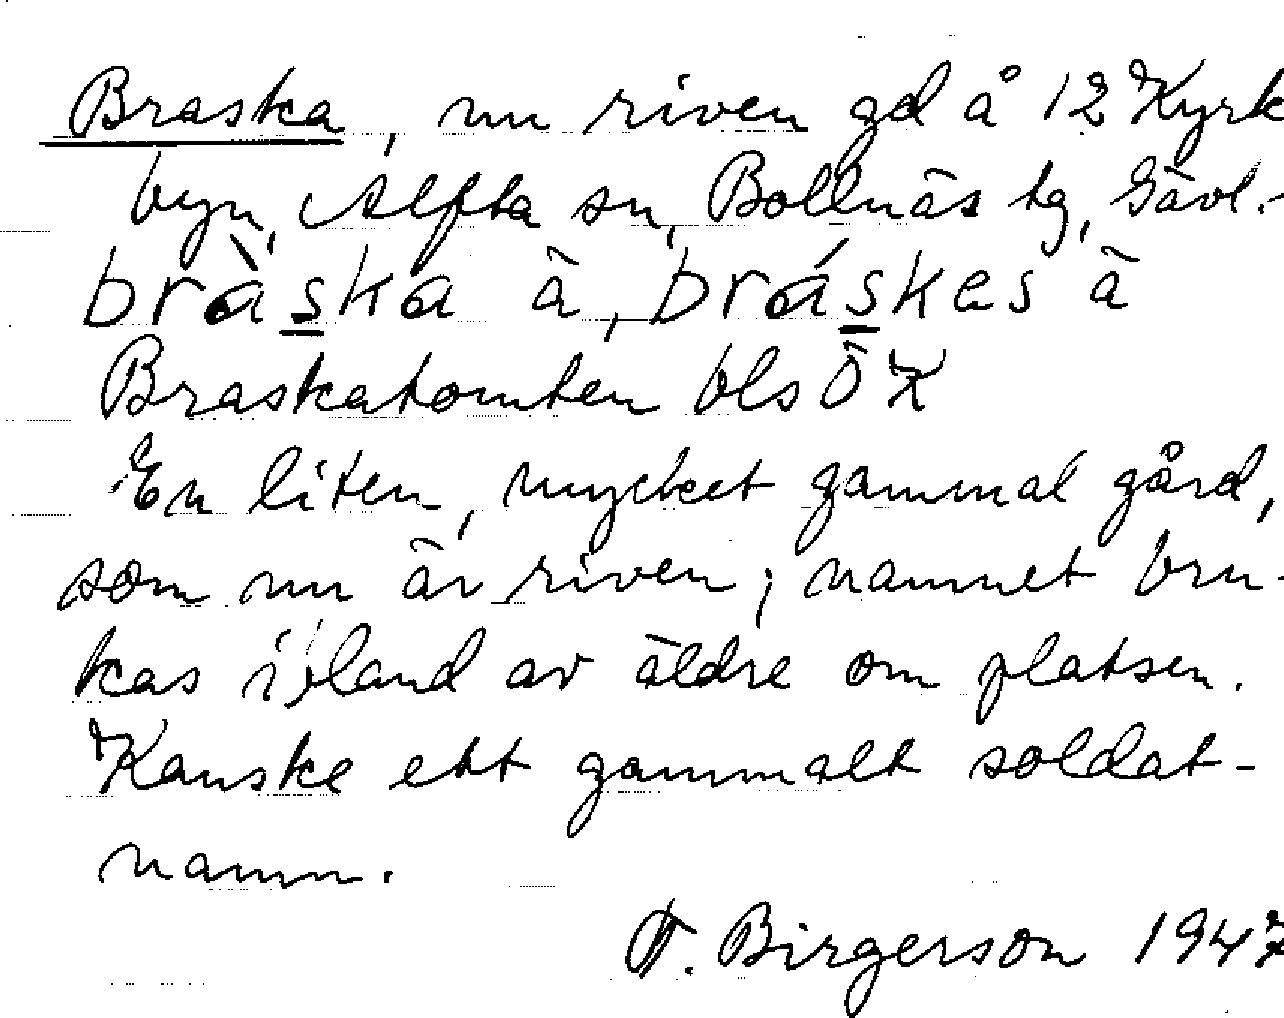 Braska, nu riven gd å 12 Kyrk
byn, Alfta sn, Bollnäs tg, Gävl.
bràska ã, bráskas ã
Braskatomten bls Ö K
En liten, mycket gammal gård,
som nu är riven; namnet bru-
kas ibland av äldre om platsen.
Kanske ett gammalt soldat-
namn.
Birgerson 1947